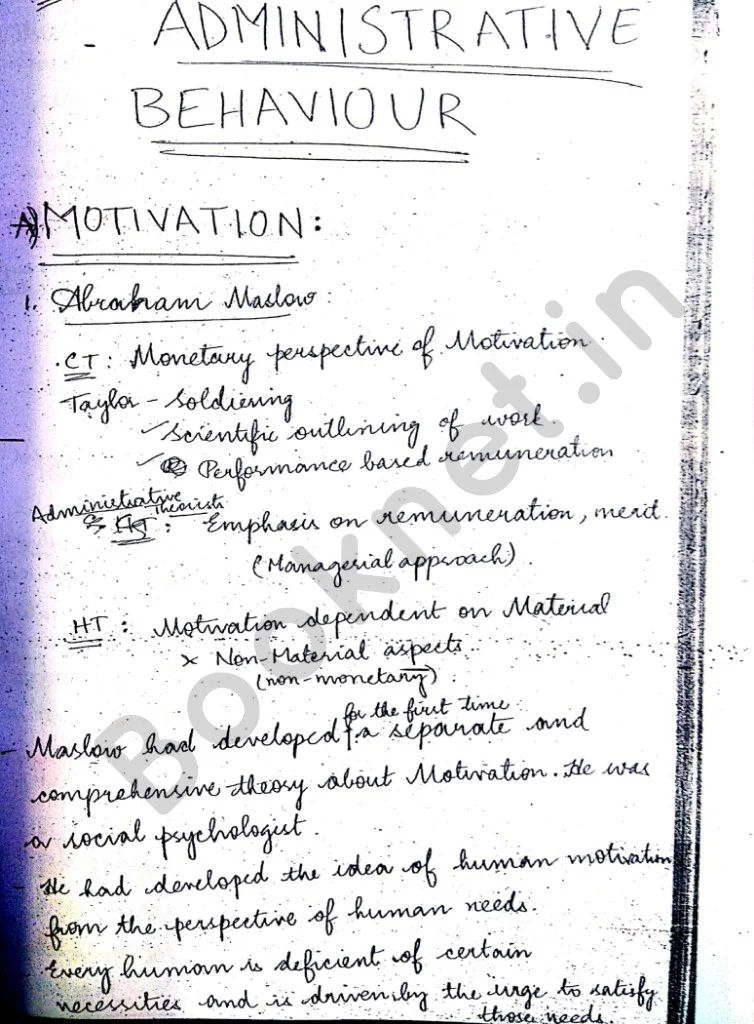 - ADMINISTRATIVE
BEHAVIOUR
A) MOTIVATION:
1. Abraham Maslow:
CT: Monetary perspective of Motivation.
Taylor - Soldiering
✓ Scientific outlining of work.
✓ Performance based remuneration
Administrative Theorists
: Emphasis on remuneration, merit.
(Managerial approach)
HT: Motivation dependent on Material
x Non-Material aspects.
(non-monetary).
for the first time
- Maslow had developed a separate and
comprehensive theory about Motivation. He was
a social psychologist.
- He had developed the idea of human motivation
from the perspective of human needs.
- Every human is deficient of certain
necessities and is driven by the urge to satisfy
those needs.
Booknet.in